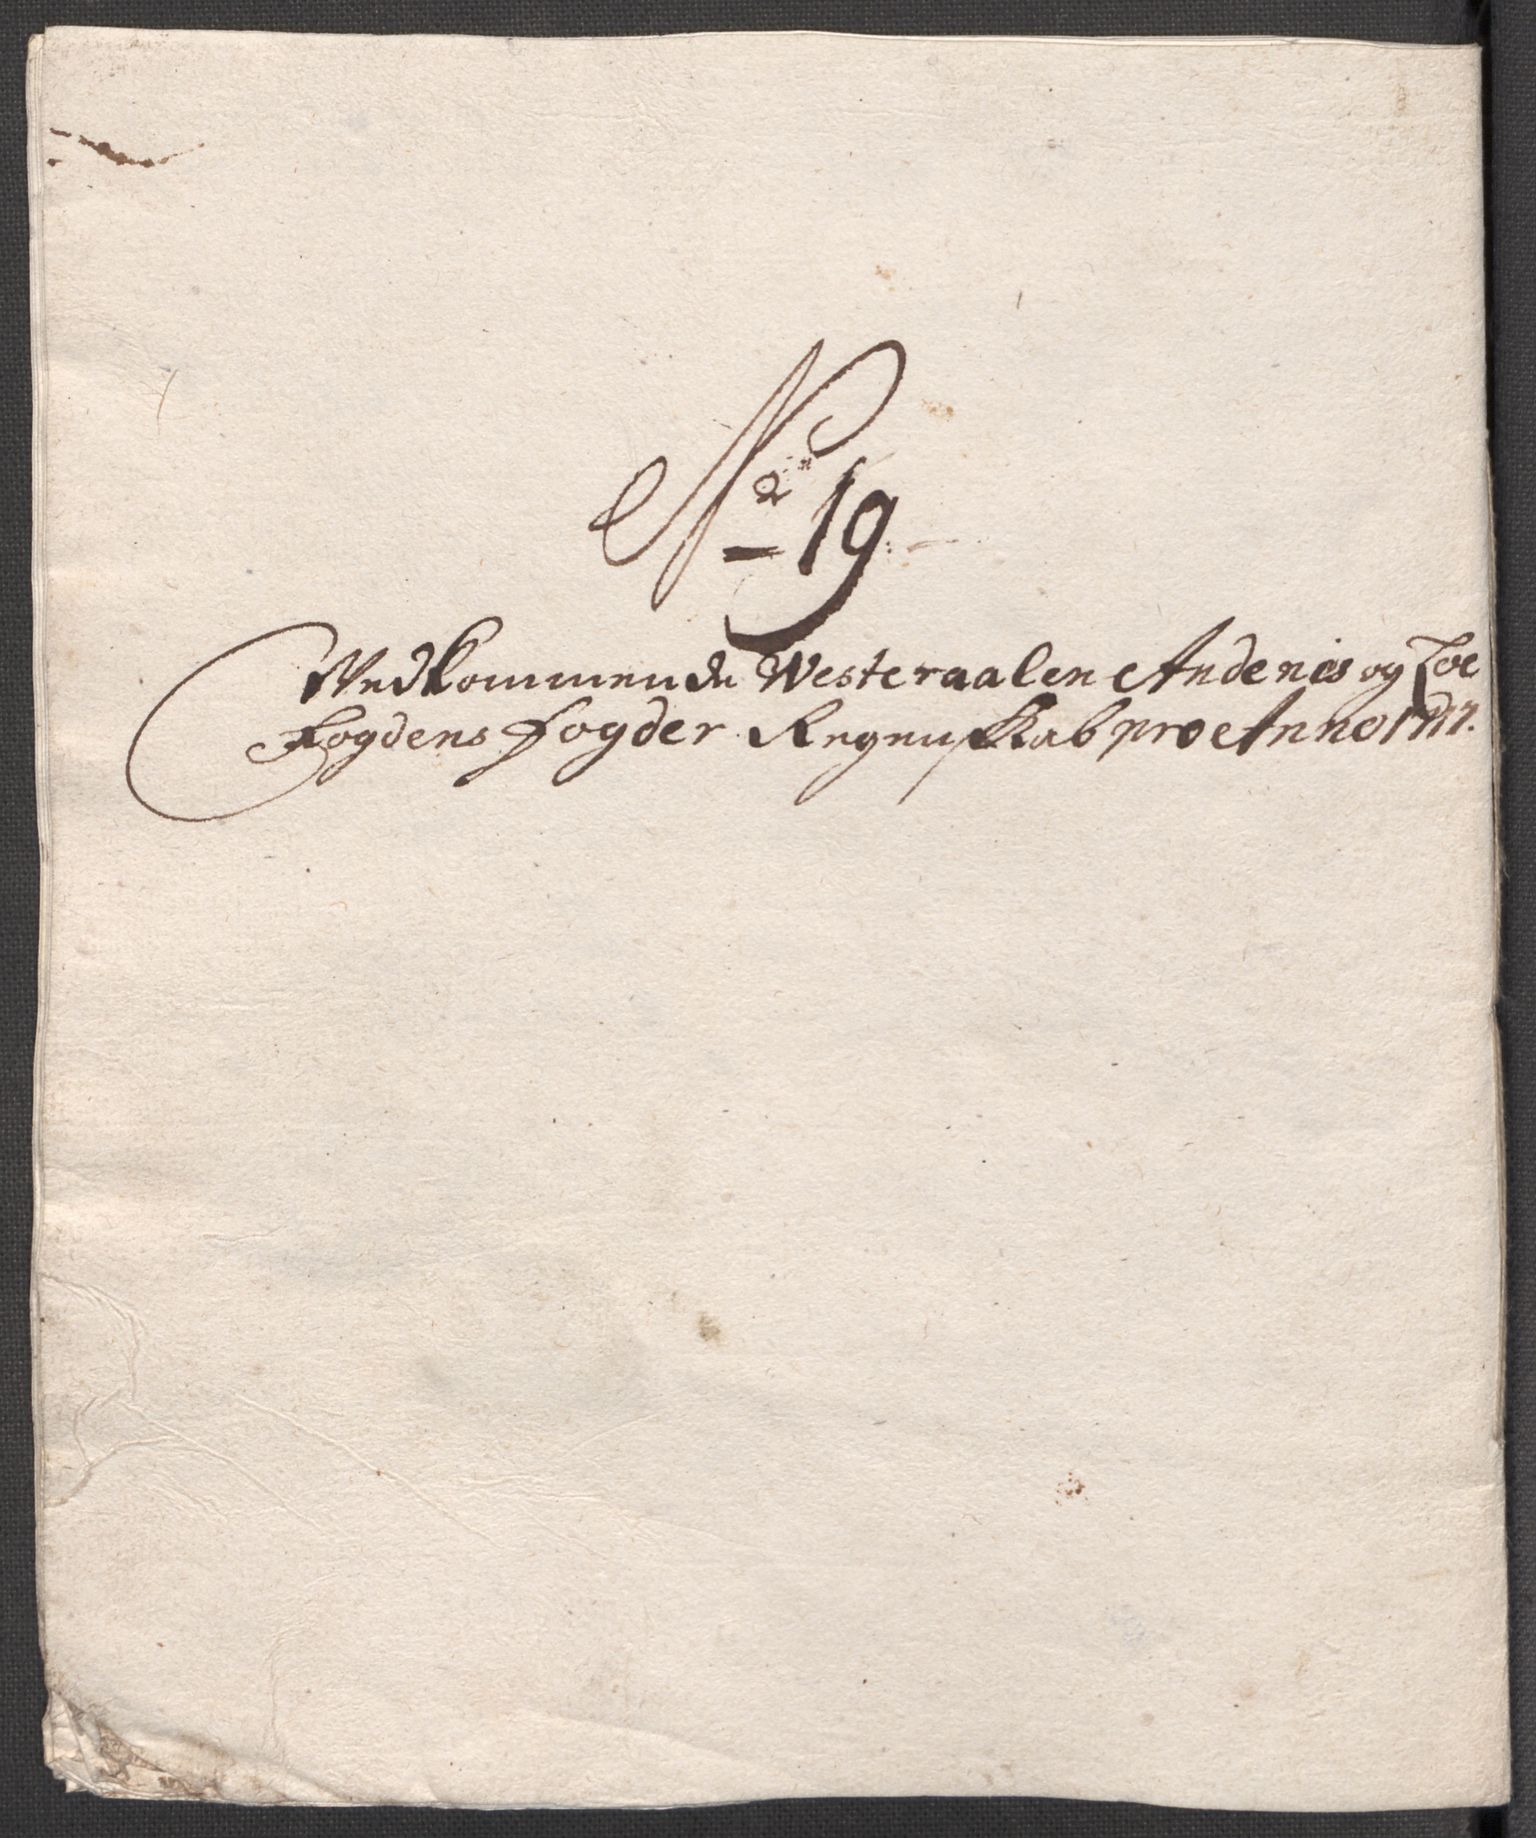 No 19.
Vedkommende Westeraalen Andenis og Loe
Fogdens Fogder Regenskab pro Anno 1717.